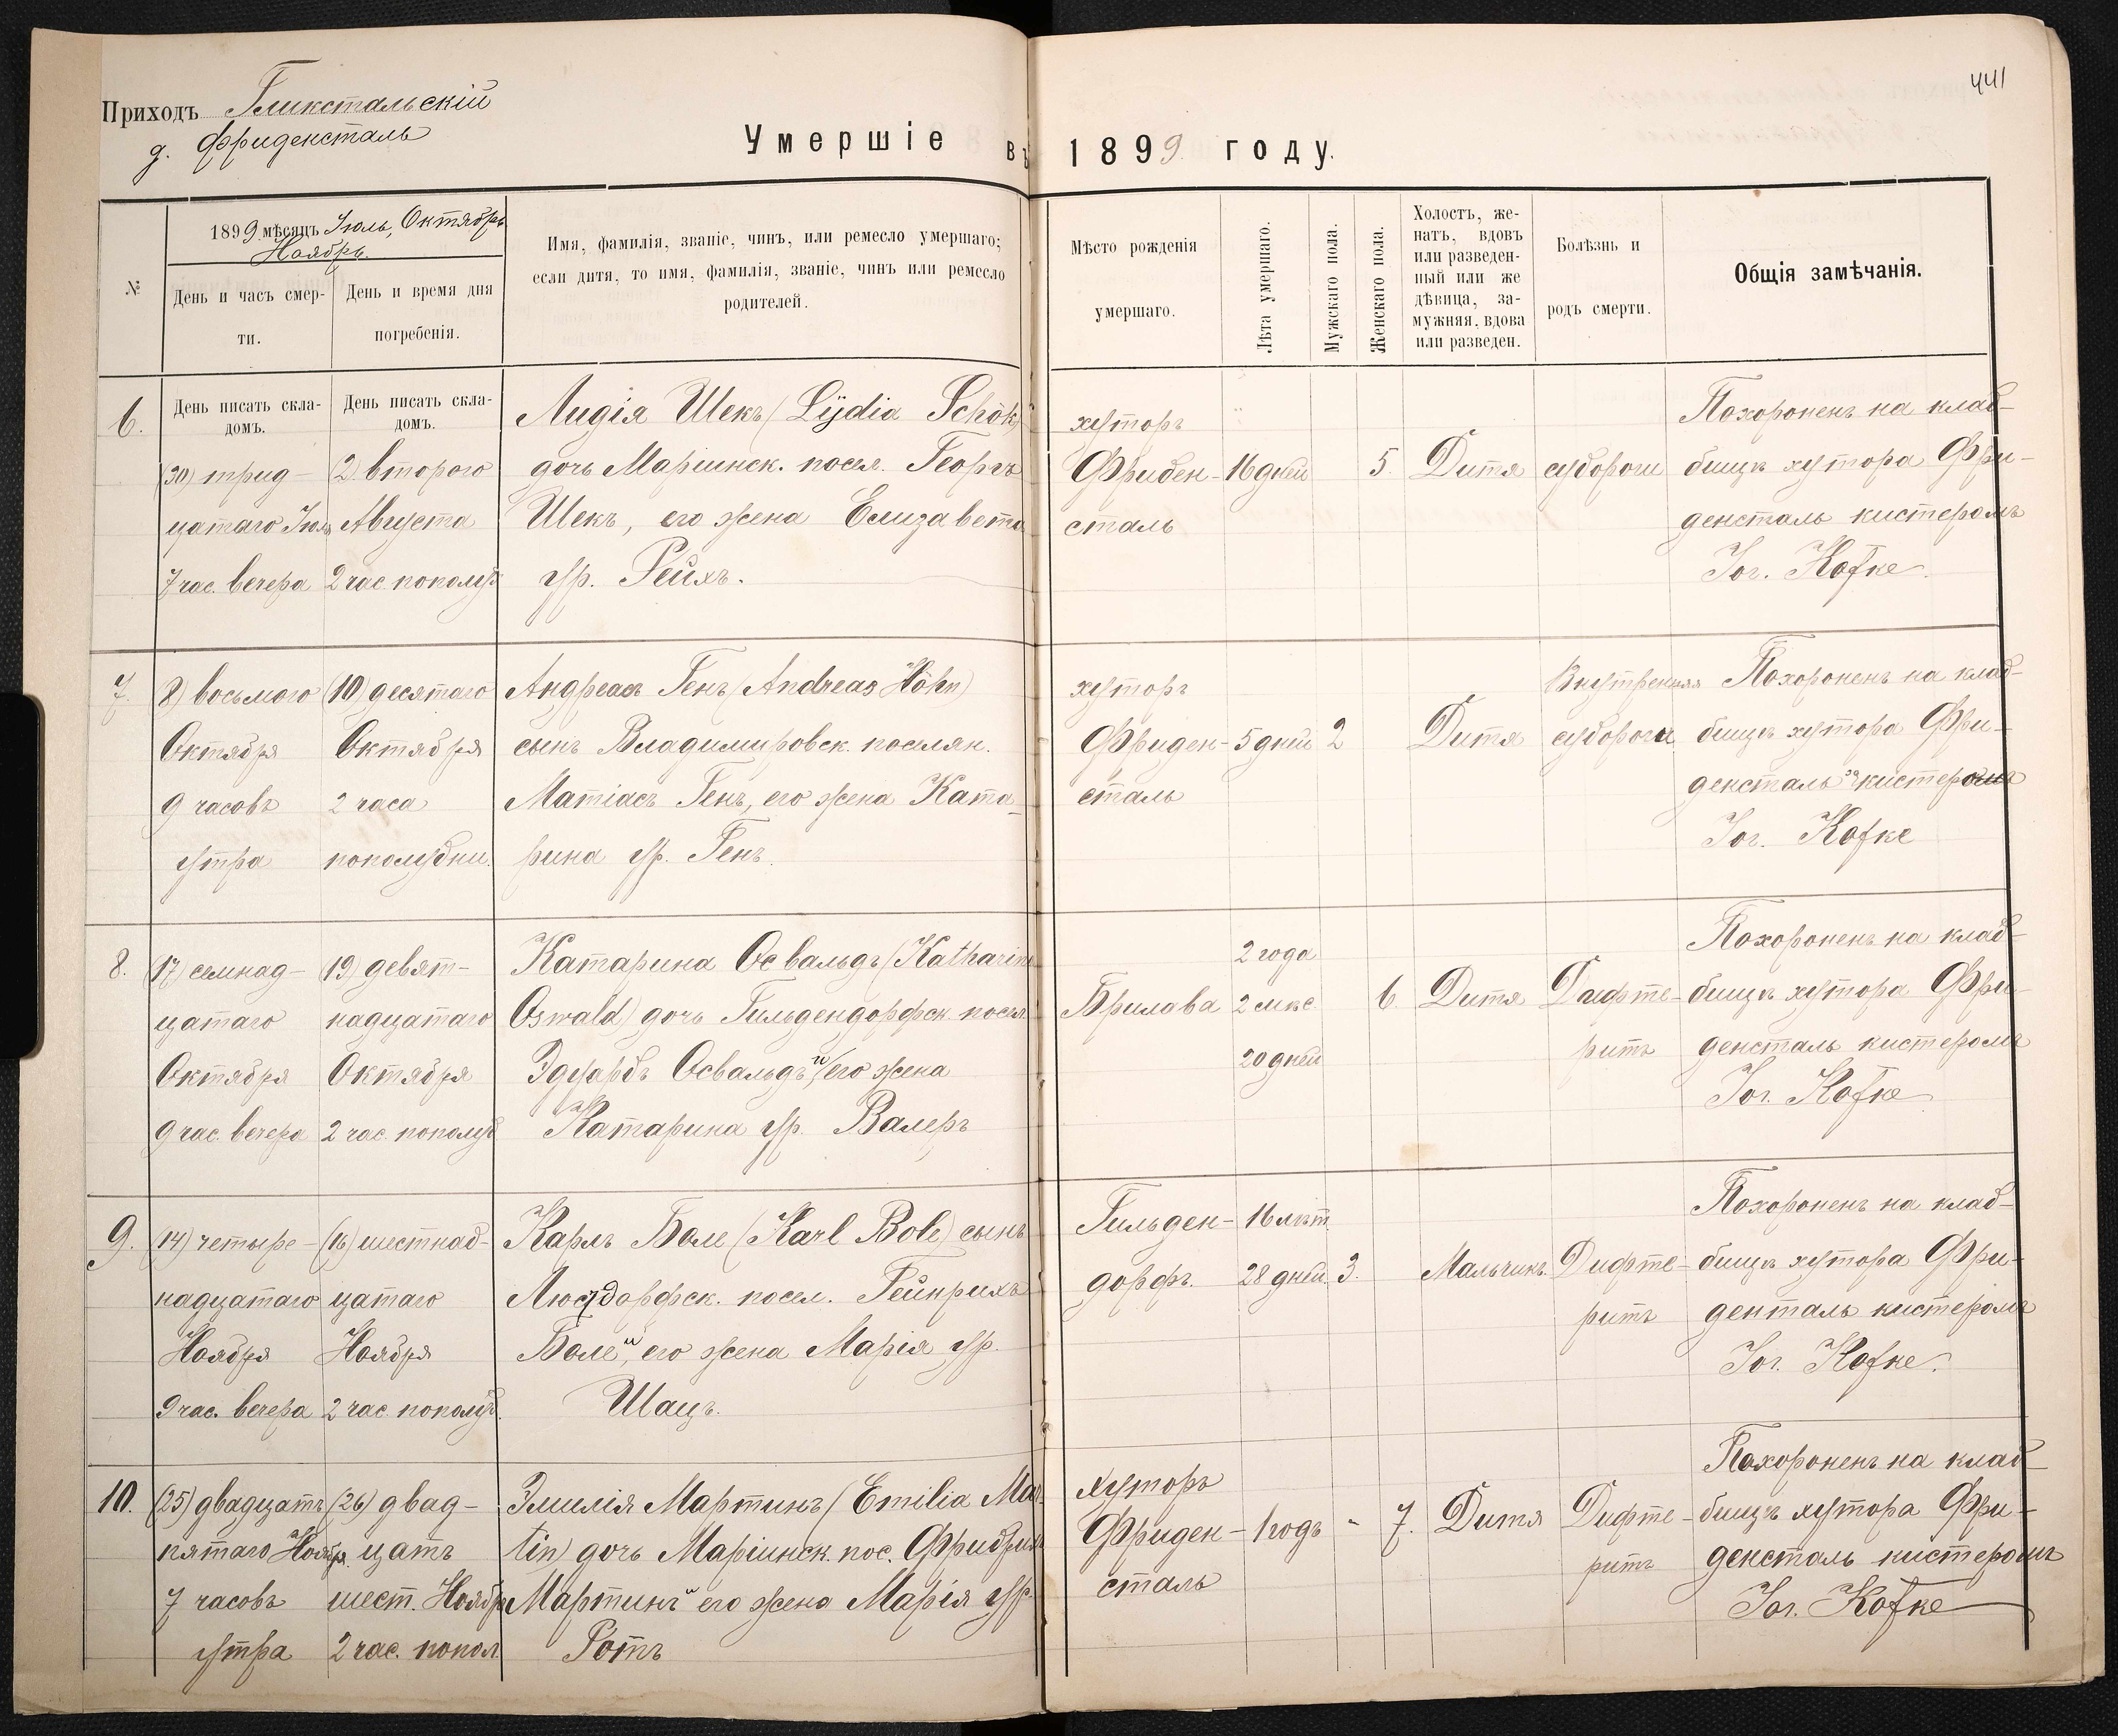 441
Приходъ Гликстальскій
д. Фриденсталь
Умершіе въ 1899 году.
№
1899 мѣсяцъ Іюль, Октябрь
Ноябрь.
День и часъ смер-
ти.
День и время дня
погребенія.
Имя, фамилія, званіе, чинъ, или ремесло умершаго;
если дитя, то имя, фамилія, званіе, чинъ или ремесло
родителей.
Мѣсто рожденія
умершаго.
Лѣта умершаго.
Мужскаго пола.
Женскаго пола.
Холостъ, же-
натъ, вдовъ
или разведен-
ный или же
дѣвица, за-
мужняя, вдова
или разведен.
Болѣзнь и
родъ смерти.
Общія замѣчанія.
6.
День писать скла-
домъ.
(30) трид-
цатаго Іюля
7 час. вечера
День писать скла-
домъ.
(2) второго
Августа
2 час. пополуд
Лидія Шекъ (Lÿdia Schök)
дочь Маріинск. посел. Георгъ
Шекъ, его жена Елизавета
ур. Рейхъ.
хуторъ
Фриден-
сталь
16 дней
5.
Дитя
судороги
Похороненъ на клад-
бищѣ хутора Фри-
денсталь кистеромъ
Joг. Kofke.
7.
8) восьмого
Октября
9 часовъ
утра
(10) десятаго
Октября
2 часа
пополудни.
Андреасъ Генъ (Andreas Höhn)
сынъ Владимировск. поселян.
Матіасъ Генъ, его жена Ката-
рина ур. Генъ.
хуторъ
Фриден-
сталь
5 дней
2
Дитя
Внутренняя
судороги
Похороненъ на клад-
бищѣ хутора Фри-
денсталь кистеромъ
Joг. Kofke
8.
(17) семнад-
цатаго
Октября
9 час. вечера
(19) девят-
надцатаго
Октября
2 час. пополуд
Катарина Освальдъ (Katharina
Oswald) дочь Гильдендорфск. посел.
Эдуардъ Освальдъ и его жена
Катарина ур. Валеръ
Брилава
2 года
2 мѣс.
20 дней
6.
Дитя
Дифте-
ритъ
Похороненъ на клад-
бищѣ хутора Фри-
денсталь кистеромъ
Joг. Kofke
9.
(14) четыре-
надцатаго
Ноября
9 час. вечера
(16) шестнад-
цатаго
Ноября
2 час. пополуд.
Карлъ Боле (Karl Bole) сынъ
Люстдорфск. посел. Гейнрихъ
Боле и, его жена Марія ур.
Шацъ.
Гильден-
дорфъ.
16 лѣт
28 дней
3.
Мальчикъ.
Дифте-
ритъ
Похороненъ на клад-
бищѣ хутора Фри-
денталь кистеромъ
Joг. Kofke.
10.
(25) двадцать
пятаго Ноябр.
7 часовъ
утра
(26) двад-
цать
шест. Ноябр
2 час. попол.
Эмилія Мартинъ (Emilia Mar-
tin) дочь Маріинск. пос. Фридрихъ
Мартинъ и его жена Марія ур.
Ротъ
Хуторъ
Фриден-
сталь
1 годъ
"
7.
Дитя
Дифте-
ритъ
Похороненъ на клад-
бищѣ хутора Фри-
денсталь кистеромъ
Joг. Kofke